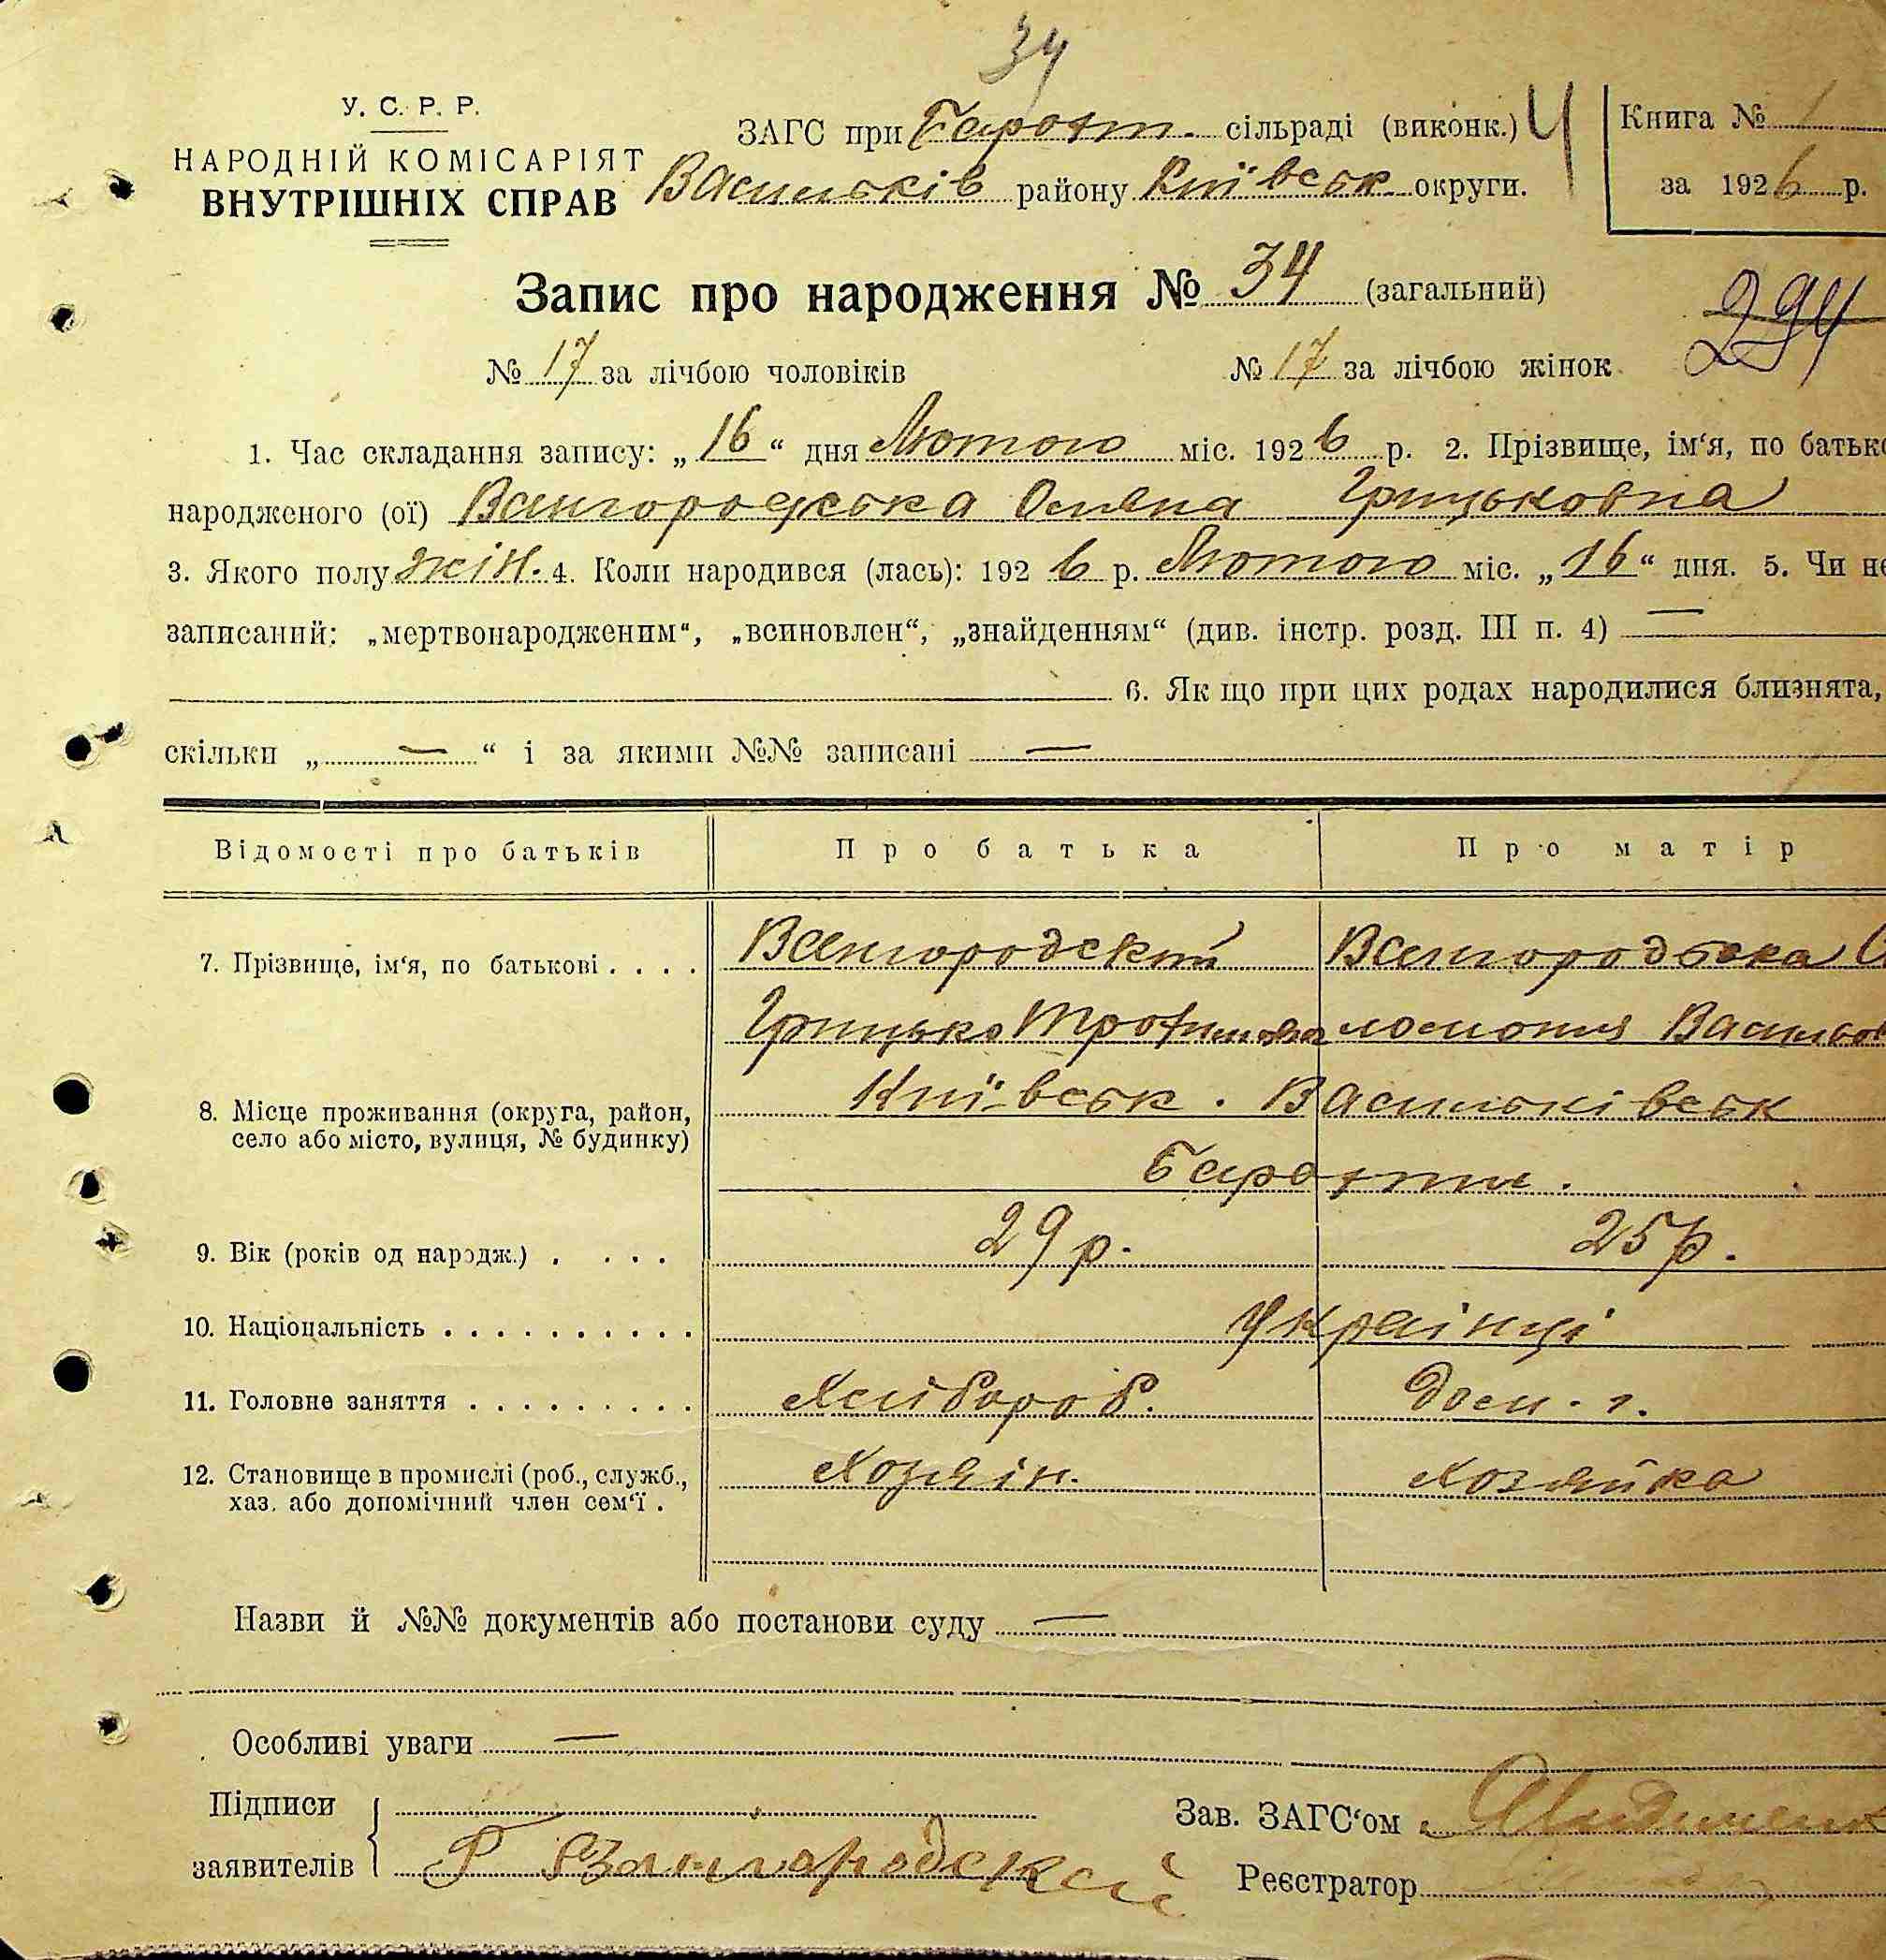 34
У. С. Р. Р.
НАРОДНІЙ КОМІСАРІЯТ
ВНУТРІШНІХ СПРАВ
ЗАГС при сільраді (виконк.) Ч
Васильків району Київськ округи.
Книга № 1
за 1926 р.
Запис про народження № 34 (загальний)
294
№ 17 за лічбою чоловіків № 17 за лічбою жінок
1. Час складання запису: „16“ дня Лютого міс. 1926 р. 2. Прізвище, ім‘я, по батько
народженого (ої) Вангородська Грицьковна
3. Якого полу жін. 4. Коли народився (лась): 1926 р. Лютого міс. „16“ дня. 5. Чи не
записаний: „мертвонародженим“, „всиновлен“, „знайденням“ (див. інстр. розд. III п. 4) —
6. Як що при цих родах народилися близнята,
скільки „—“ і за якими №№ записані —
Відомості про батьків Про батька Про матір
7. Прізвище, ім‘я, по батькові . . . . Вангородский Вангородська
Грицько
8. Місце проживання (округа, район, Київськ. Васильківськ
село або місто, вулиця, № будинку)
9. Вік (років од народж.) . . . . 29 р. 25 р.
10. Національність . . . . . . . . . . Українці
11. Головне заняття . . . . . . . . . Хлібороб. Дом. г.
12. Становище в промислі (роб., служб., Хозяїн. Хозяйка
хаз. або допомічний член сем‘ї .
Назви й №№ документів або постанови суду —
Особливі уваги —
Підписи
заявителів Г Вангородский
Зав. ЗАГС‘ом
Реєстратор